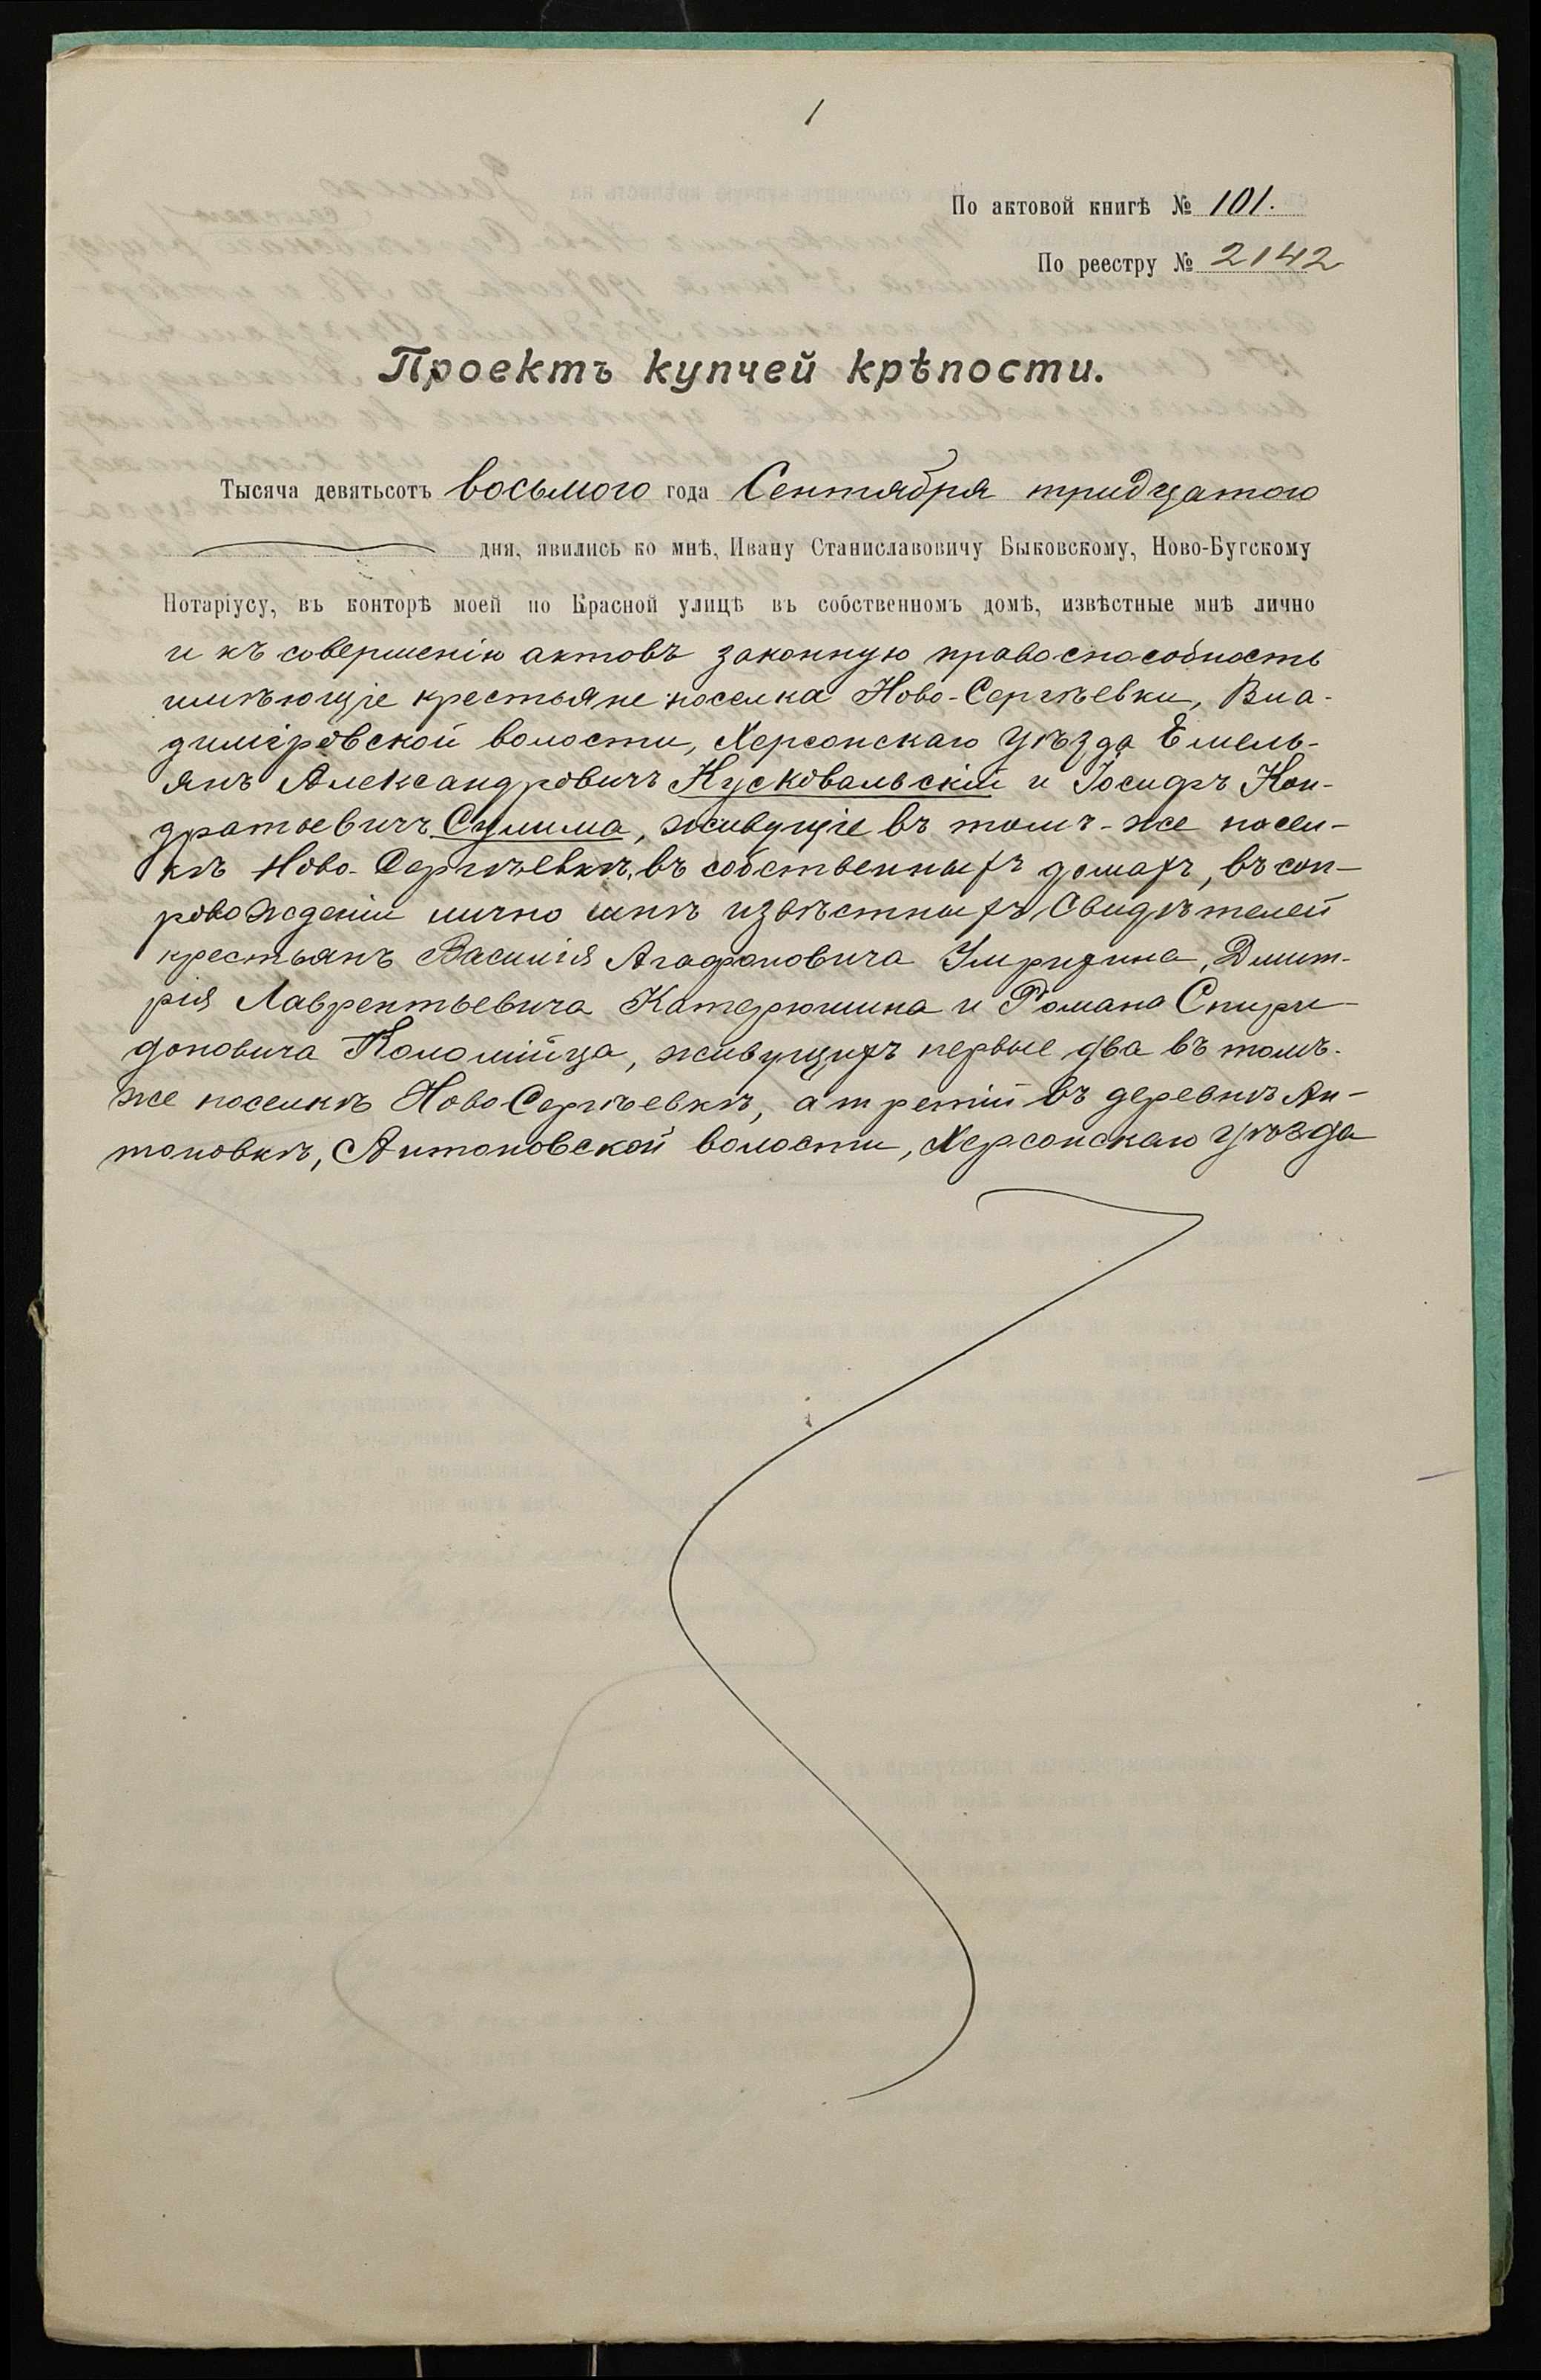 1
По актовой книгѣ № 101.
По реестру № 2142
Проектъ купчей крѣпости.
Тысяча девятьсотъ восьмого года Сентября тридцатого
дня, явились ко мнѣ, Ивану Станиславовичу Быковскому, Ново-Бугскому
Нотаріусу, въ конторѣ моей по Красной улицѣ въ собственномъ домѣ, извѣстные мнѣ лично
и къ совершенію актовъ законную правоспособность
имѣющіе крестьяне поселка Ново-Сергѣевки, Вла-
диміровской волости, Херсонскаго уѣзда Емель-
янъ Александровичъ Кусковальскій и Іосифъ Кон-
дратьевичъ Сулима, живущіе въ томъ-же посел-
кѣ Ново-Сергѣевкѣ, въ собственныхъ домахъ, въ соп-
ровожденіи лично мнѣ извѣстныхъ свидѣтелей
крестьянъ Василія Агафоновича Умрихина, Дмит-
рія Лаврентьевича Катерюшина и Романа Спири-
доновича Коломійца, живущихъ первые два въ томъ-
же поселкѣ Ново Сергѣевкѣ, а третій въ деревнѣ Ан-
тоновкѣ, Антоновской волости, Херсонскаго уѣзда